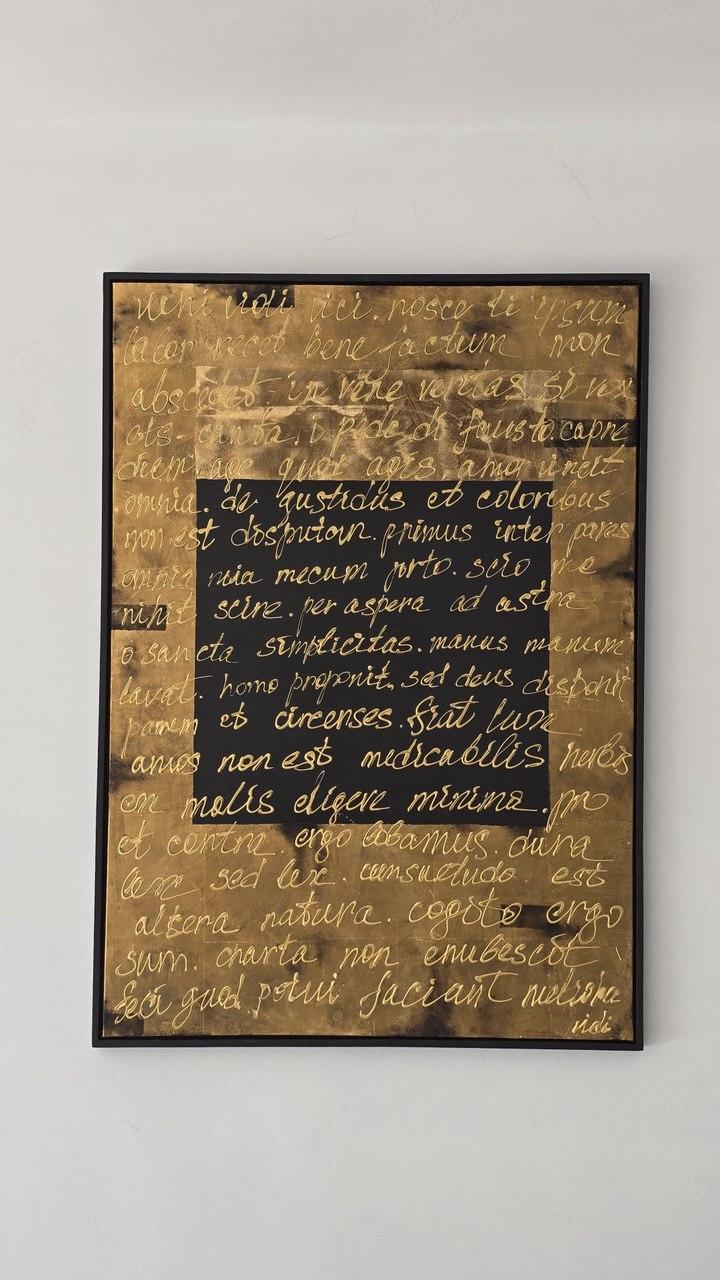 veni vidi vici. nosce ti ipsum
labor recet bene factum non
abscedet. in vine veritas si vox
ots canta. i pede di fausto capre
diem age quod agis. amor vincit
omnia. de gustidus et coloribus
non est disputan. primus inter pares
omnia mia mecum porto. scio me
nihil scire. per aspera ad astra
o sancta simplicitas. manus manum
lavat. homo proponit, sed deus disponit
panem et circenses. fiat lux
amos non est medicabilis herbis
ex malis eligere minima. pro
et contra. ergo bibamus. dura
lex sed lex. consuetudo est
altera natura. cogito ergo
sum. charta non erubescit
feci quod potui faciant meliora